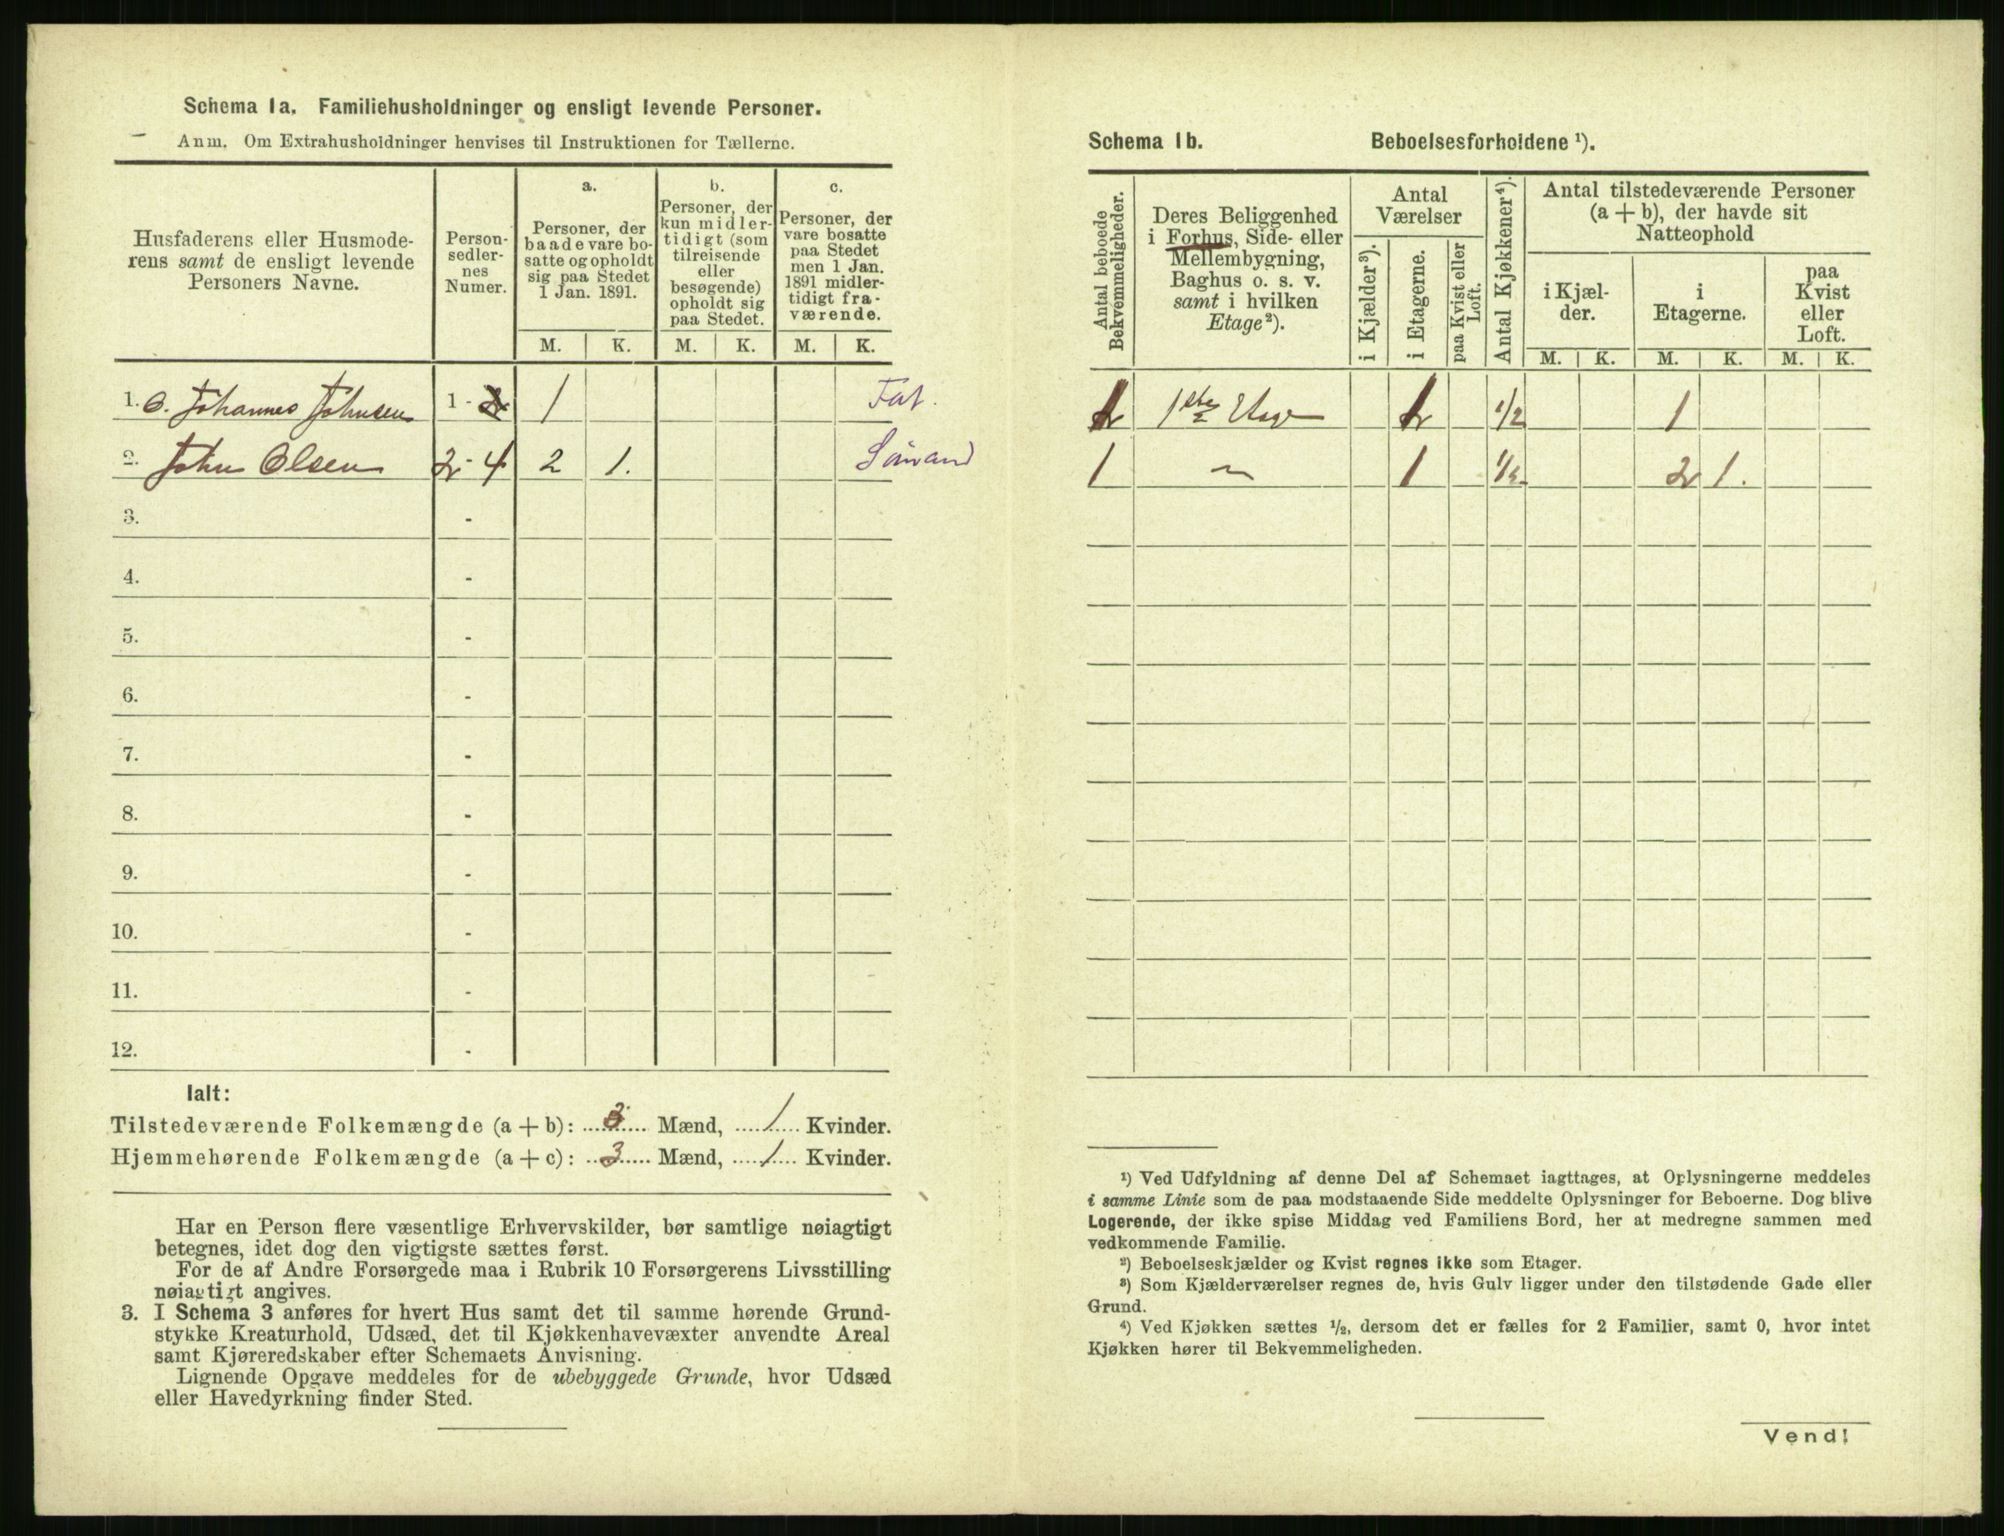 Schema 1a. Familiehusholdninger og ensligt levende Personer.
Anm. Om Extrahusholdninger henvises til Instruktionen for Tællerne.
Husfaderens eller Husmode-
rens samt de ensligt levende
Personers Navne.
Person-
sedler-
nes
Numer.
a.
Personer, der
baade vare bo-
satte og opholdt
sig paa Stedet
1 Jan. 1891.
b.
Personer, der
kun midler-
tidigt (som
tilreisende
eller
besøgende)
opholdt sig
paa Stedet.
c.
Personer, der
vare bosatte
paa Stedet
men 1 Jan.
1891 midler-
tidigt fra-
værende.
M. K. M. K. M. K.
1. O. Johannes Johnsen 1 - 1 Fat.
2. John Olsen 2 - 4 2 1.
3. -
4. -
5. -
6. -
7. -
8. -
9. -
10. -
11. -
12. -
Ialt:
Tilstedeværende Folkemængde (a + b): 3 Mænd, 1 Kvinder.
Hjemmehørende Folkemængde (a + c): 3 Mænd, 1 Kvinder.
Har en Person flere væsentlige Erhvervskilder, bør samtlige nøiagtigt
betegnes, idet dog den vigtigste sættes først.
For de af Andre Forsørgede maa i Rubrik 10 Forsørgerens Livsstilling
nøiagtigt angives.
3. I Schema 3 anføres for hvert Hus samt det til samme hørende Grund-
stykke Kreaturhold, Udsæd, det til Kjøkkenhavevæxter anvendte Areal
samt Kjøreredskaber efter Schemaets Anvisning.
Lignende Opgave meddeles for de ubebyggede Grunde, hvor Udsæd
eller Havedyrkning finder Sted.
Schema 1b. Beboelsesforholdene ¹).
Antal beboede
Bekvemmeligheder.
Deres Beliggenhed
i Forhus, Side- eller
Mellembygning,
Baghus o. s. v.
samt i hvilken
Etage²).
Antal
Værelser
i Kjælder³).
i Etagerne.
paa Kvist eller
Loft.
Antal Kjøkkener⁴).
Antal tilstedeværende Personer
(a + b), der havde sit
Natteophold
i Kjæl-
der.
i
Etagerne.
paa
Kvist
eller
Loft.
M. K. M. K. M. K.
1ste Etage 1/2 1
1 " 1 1/2 2 1.
¹) Ved Udfyldning af denne Del af Schemaet iagttages, at Oplysningerne meddeles
i samme Linie som de paa modstaaende Side meddelte Oplysninger for Beboerne. Dog blive
Logerende, der ikke spise Middag ved Familiens Bord, her at medregne sammen med
vedkommende Familie.
²) Beboelseskjælder og Kvist regnes ikke som Etager.
³) Som Kjælderværelser regnes de, hvis Gulv ligger under den tilstødende Gade eller
Grund.
⁴) Ved Kjøkken sættes 1/2, dersom det er fælles for 2 Familier, samt 0, hvor intet
Kjøkken hører til Bekvemmeligheden.
Vend!